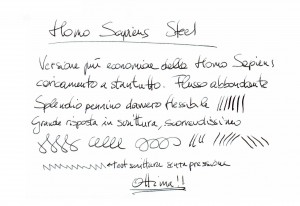 Homo Sapiens Steel
Versione più economica della Homo Sapiens
caricamento a stantuffo. Flusso abbondante
Splendido pennino davvero flessibile
Grande risposta in scrittura, scorrevolissimo
test scrittura senza pressione
Ottima!!